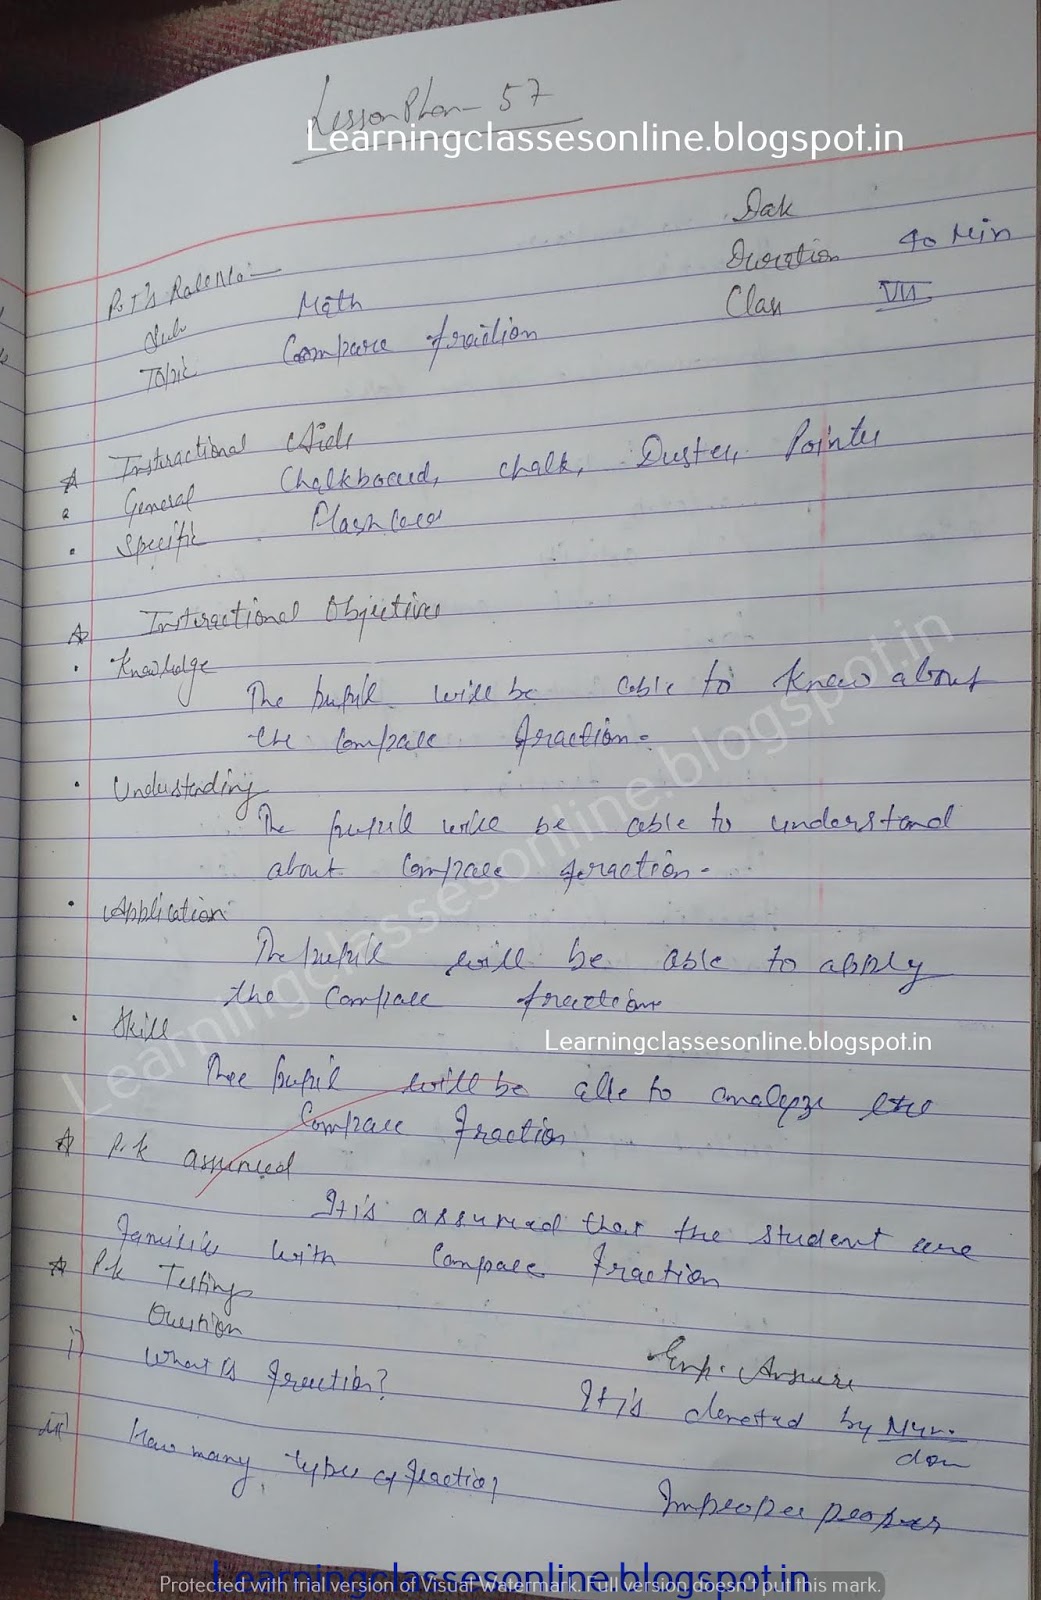 Lesson Plan - 57
Learningclassesonline.blogspot.in
Date
P.T's Roll No:-
Duration 40 Min
Sub Math
Class VII
Topic Compare fraction
Instractional Aids
General Chalkboard, chalk, Duster, Pointer
Specific Flash Card
Instractional Objectives
Knowledge
The pupil will be able to know about
the compare fraction.
Understanding
The pupil will be able to understand
about compare fraction.
Learningclassesonline.blogspot.in
Application
The pupil will be able to apply
the compare fraction
Skill
Learningclassesonline.blogspot.in
The pupil will be able to analyze the
Compare Fraction
P.k assumed
It is assumed that the student are
familiar with Compare Fraction
P.k Testing
Question Exp. Answer
i) What is fraction? It is denoted by Num.
den
ii) How many types of fraction, Improper proper
Learningclassesonline.blogspot.in
Protected with trial version of Visual Watermark. Full version doesn't put this mark.